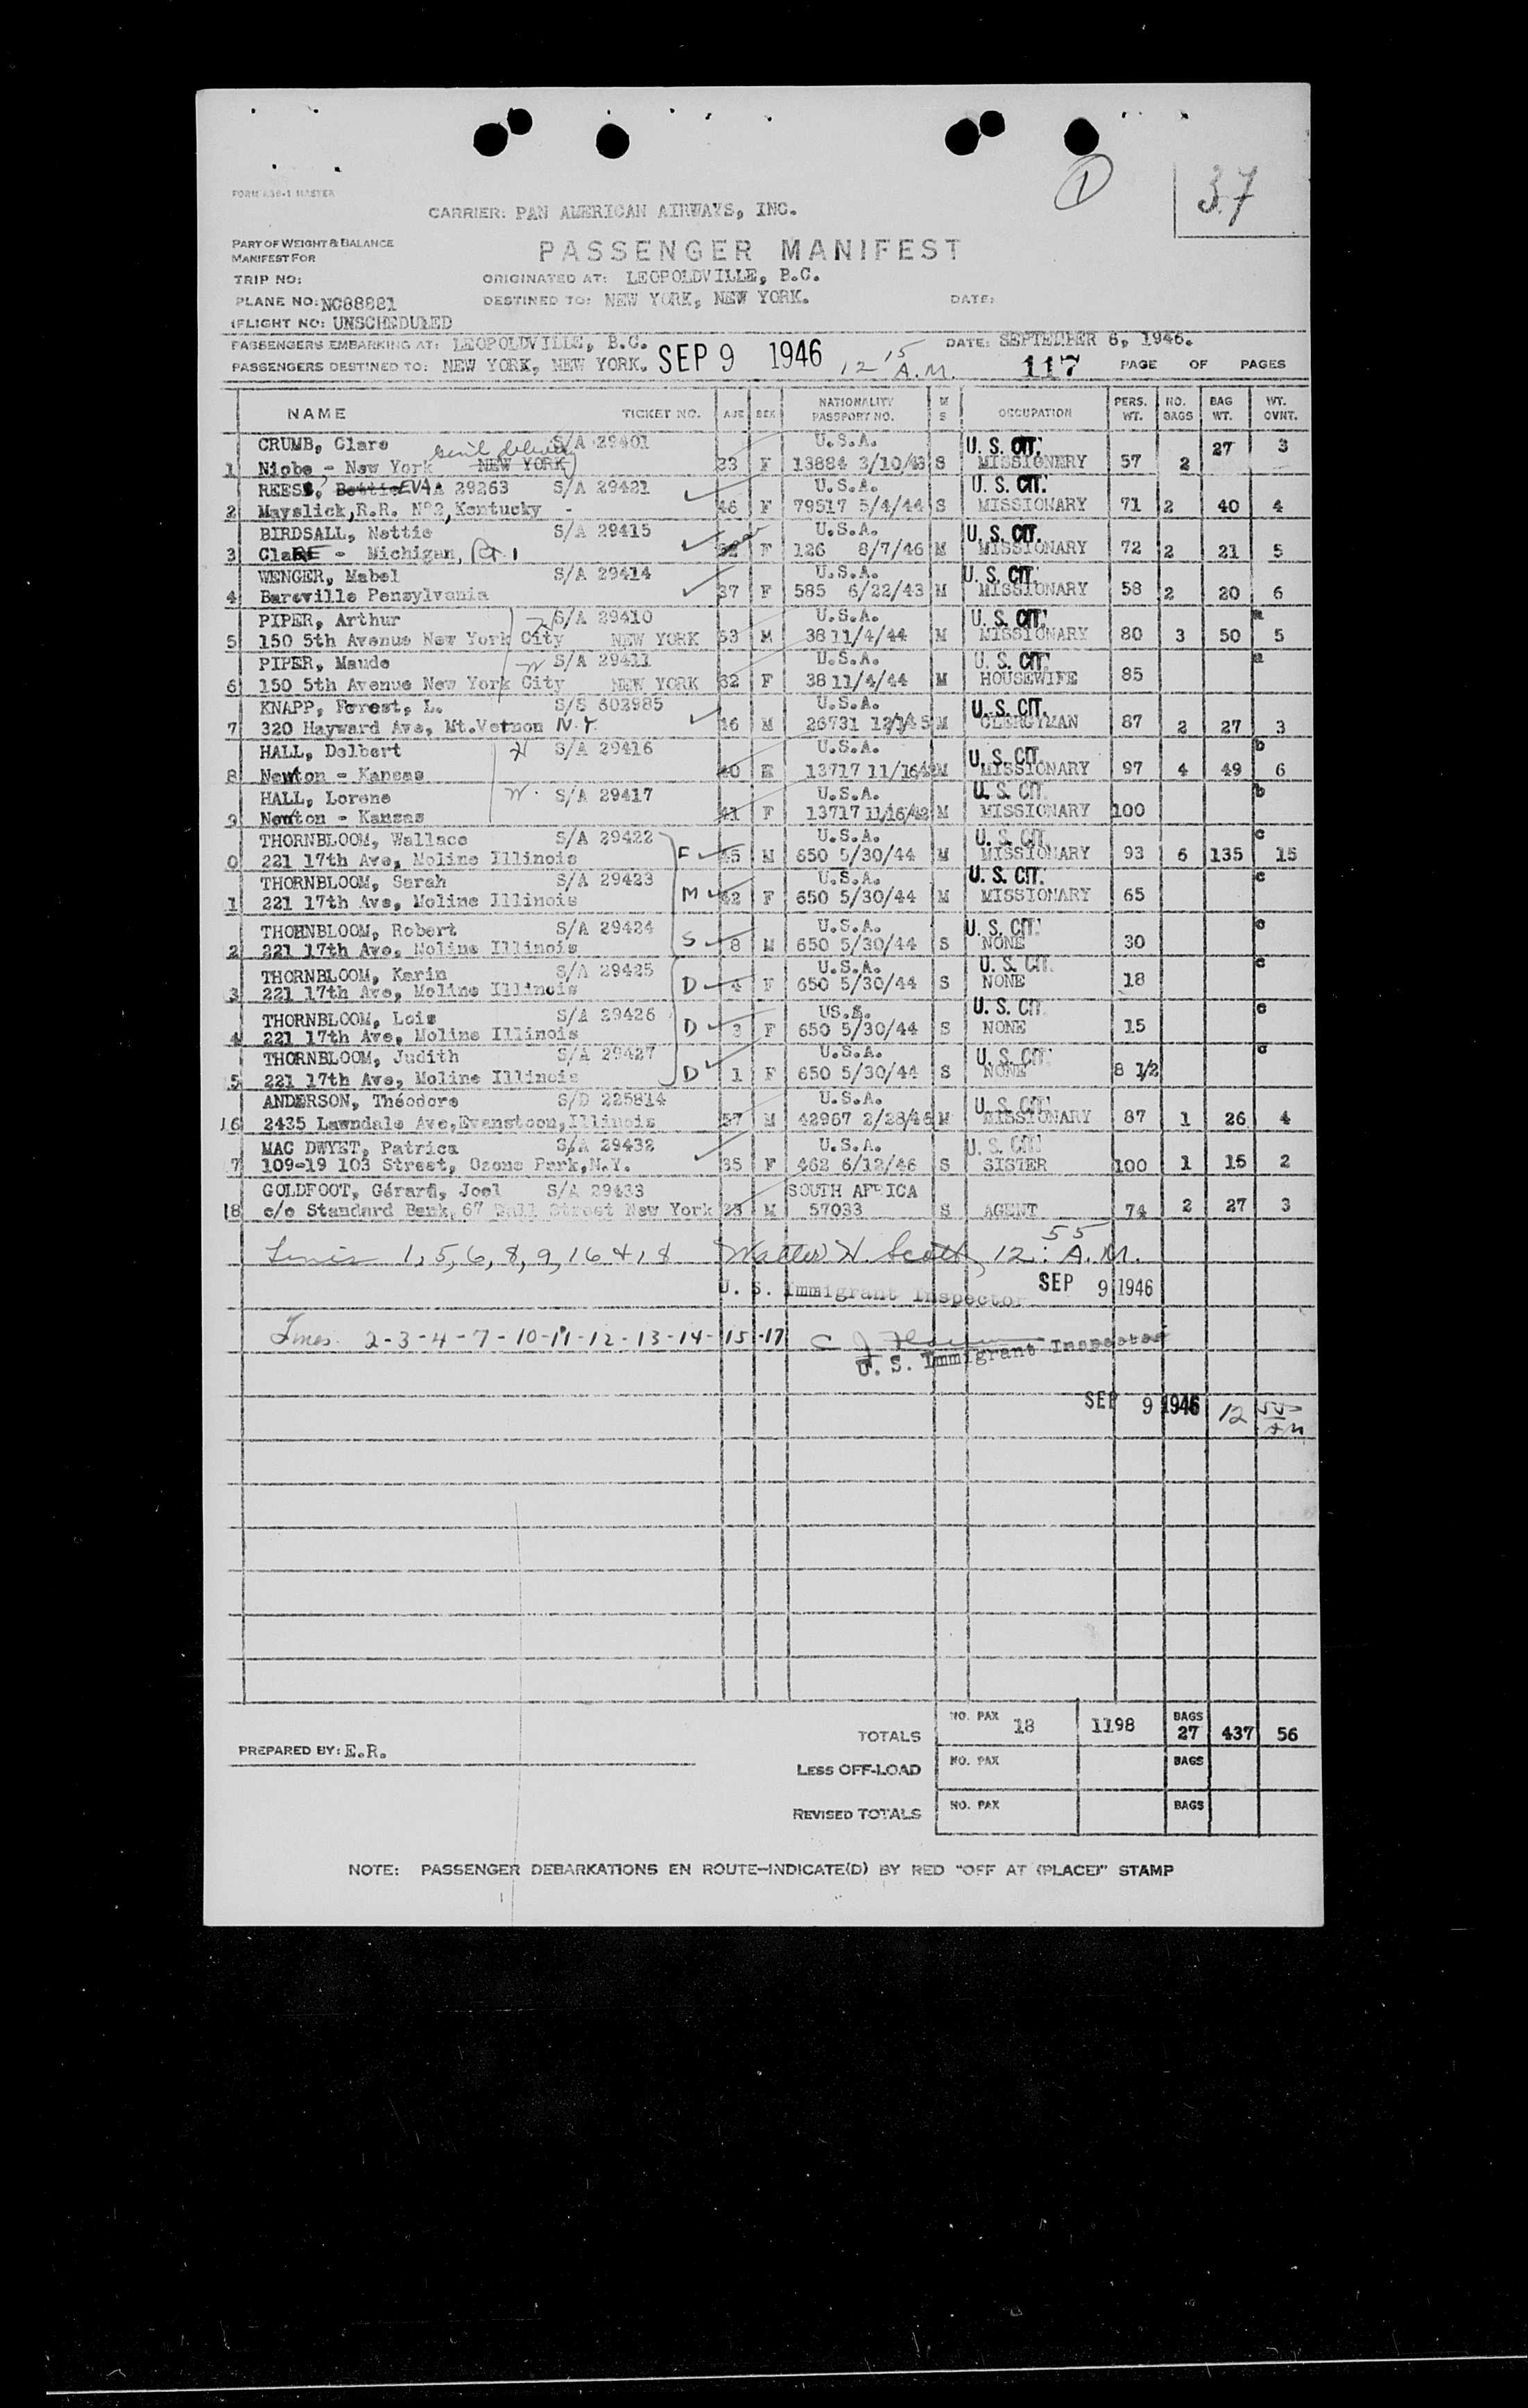 ①
37
FORM 430-1 MASTER
CARRIER: PAN AMERICAN AIRWAYS, INC.
PART OF WEIGHT & BALANCE
MANIFEST FOR
PASSENGER MANIFEST
TRIP NO:
ORIGINATED AT: LEOPOLDVILLE, B.C.
PLANE NO: NC88881
DESTINED TO: NEW YORK, NEW YORK.
DATE:
FLIGHT NO: UNSCHEDULED
PASSENGERS EMBARKING AT: LEOPOLDVILLE, B.C.
DATE: SEPTEMBER 6, 1946.
PASSENGERS DESTINED TO: NEW YORK, NEW YORK. SEP 9 1946 12 15 A.M.
117 PAGE OF PAGES
NAME TICKET NO. AGE SEX NATIONALITY PASSPORT NO. M S OCCUPATION PERS. WT. NO. BAGS BAG WT. WT. OVNT.
CRUMB, Clare S/A 29401 U.S.A. U. S. CIT. 27 3
1 Niobe - New York NEW YORK 33 F 13884 3/10/43 S MISSIONERY 57 2
REES, Bettie EVA A 29263 S/A 29421 U.S.A. U. S. CIT.
2 Mayslick, R.R. Nº2, Kentucky - 46 F 79517 5/4/44 S MISSIONARY 71 2 40 4
BIRDSALL, Nettie S/A 29415 U.S.A. U. S. CIT.
3 ClaRE - Michigan, Rt. 1 F 126 8/7/46 M MISSIONARY 72 2 21 5
WENGER, Mabel S/A 29414 U.S.A. U. S. CIT.
4 Bareville Pensylvania 37 F 585 6/22/43 M MISSIONARY 58 2 20 6
PIPER, Arthur S/A 29410 U.S.A. U. S. CIT. a
5 150 5th Avenue New York City NEW YORK 63 M 38 11/4/44 M MISSIONARY 80 3 50 5
PIPER, Maude W S/A 29411 U.S.A. U. S. CIT. a
6 150 5th Avenue New York City NEW YORK 62 F 38 11/4/44 M HOUSEWIFE 85
KNAPP, Forest, L. S/S 602985 U.S.A. U. S. CIT.
7 320 Hayward Ave, Mt.Vernon N.Y. 46 M 26731 12/1/45 M CLERGYMAN 87 2 27 3
HALL, Delbert H S/A 29416 U.S.A. U. S. CIT. b
8 Newton - Kansas 40 M 13717 11/16/42 M MISSIONARY 97 4 49 6
HALL, Lorene W. S/A 29417 U.S.A. U. S. CIT. b
9 Newton - Kansas 41 F 13717 11/16/42 M MISSIONARY 100
THORNBLOOM, Wallace S/A 29422 U.S.A. U. S. CIT. c
0 221 17th Ave, Moline Illinois F 45 M 650 5/30/44 M MISSIONARY 93 6 135 15
THORNBLOOM, Sarah S/A 29423 U.S.A. U. S. CIT. c
1 221 17th Ave, Moline Illinois M 42 F 650 5/30/44 M MISSIONARY 65
THORNBLOOM, Robert S/A 29424 U.S.A. U. S. CIT. c
2 221 17th Ave, Moline Illinois S 8 M 650 5/30/44 S NONE 30
THORNBLOOM, Karin S/A 29425 U.S.A. U. S. CIT. c
3 221 17th Ave, Moline Illinois D 4 F 650 5/30/44 S NONE 18
THORNBLOOM, Lois S/A 29426 US.A. U. S. CIT. c
4 221 17th Ave, Moline Illinois D 3 F 650 5/30/44 S NONE 15
THORNBLOOM, Judith S/A 29427 U.S.A. U. S. CIT. c
5 221 17th Ave, Moline Illinois D 1 F 650 5/30/44 S NONE 8 1/2
ANDERSON, Théodore S/D 225814 U.S.A. U. S. CIT.
16 2435 Lawndale Ave, Evanstoon, Illinois 57 M 42967 2/28/46 M MISSIONARY 87 1 26 4
MAC DWYET, Patrica S/A 29432 U.S.A. U. S. CIT.
7 109-19 103 Street, Ozone Park, N.Y. 35 F 462 6/12/46 S SISTER 100 1 15 2
GOLDFOOT, Gérard, Joel S/A 29433 SOUTH AFRICA
18 c/o Standard Bank, 67 Wall Street New York 23 M 57033 S AGENT 74 2 27 3
Lines 1, 5, 6, 8, 9, 16 & 18 Walter H. Scott, 12:55 A.M.
U. S. Immigrant Inspector SEP 9 1946
Lines 2-3-4-7-10-11-12-13-14-15-17
U. S. Immigrant Inspector
SEP 9 1946 12 55 AM
TOTALS NO. PAX 18 1198 BAGS 27 437 56
PREPARED BY: E.R.
LESS OFF-LOAD NO. PAX BAGS
REVISED TOTALS NO. PAX BAGS
NOTE: PASSENGER DEBARKATIONS EN ROUTE—INDICATE(D) BY RED "OFF AT (PLACE)" STAMP